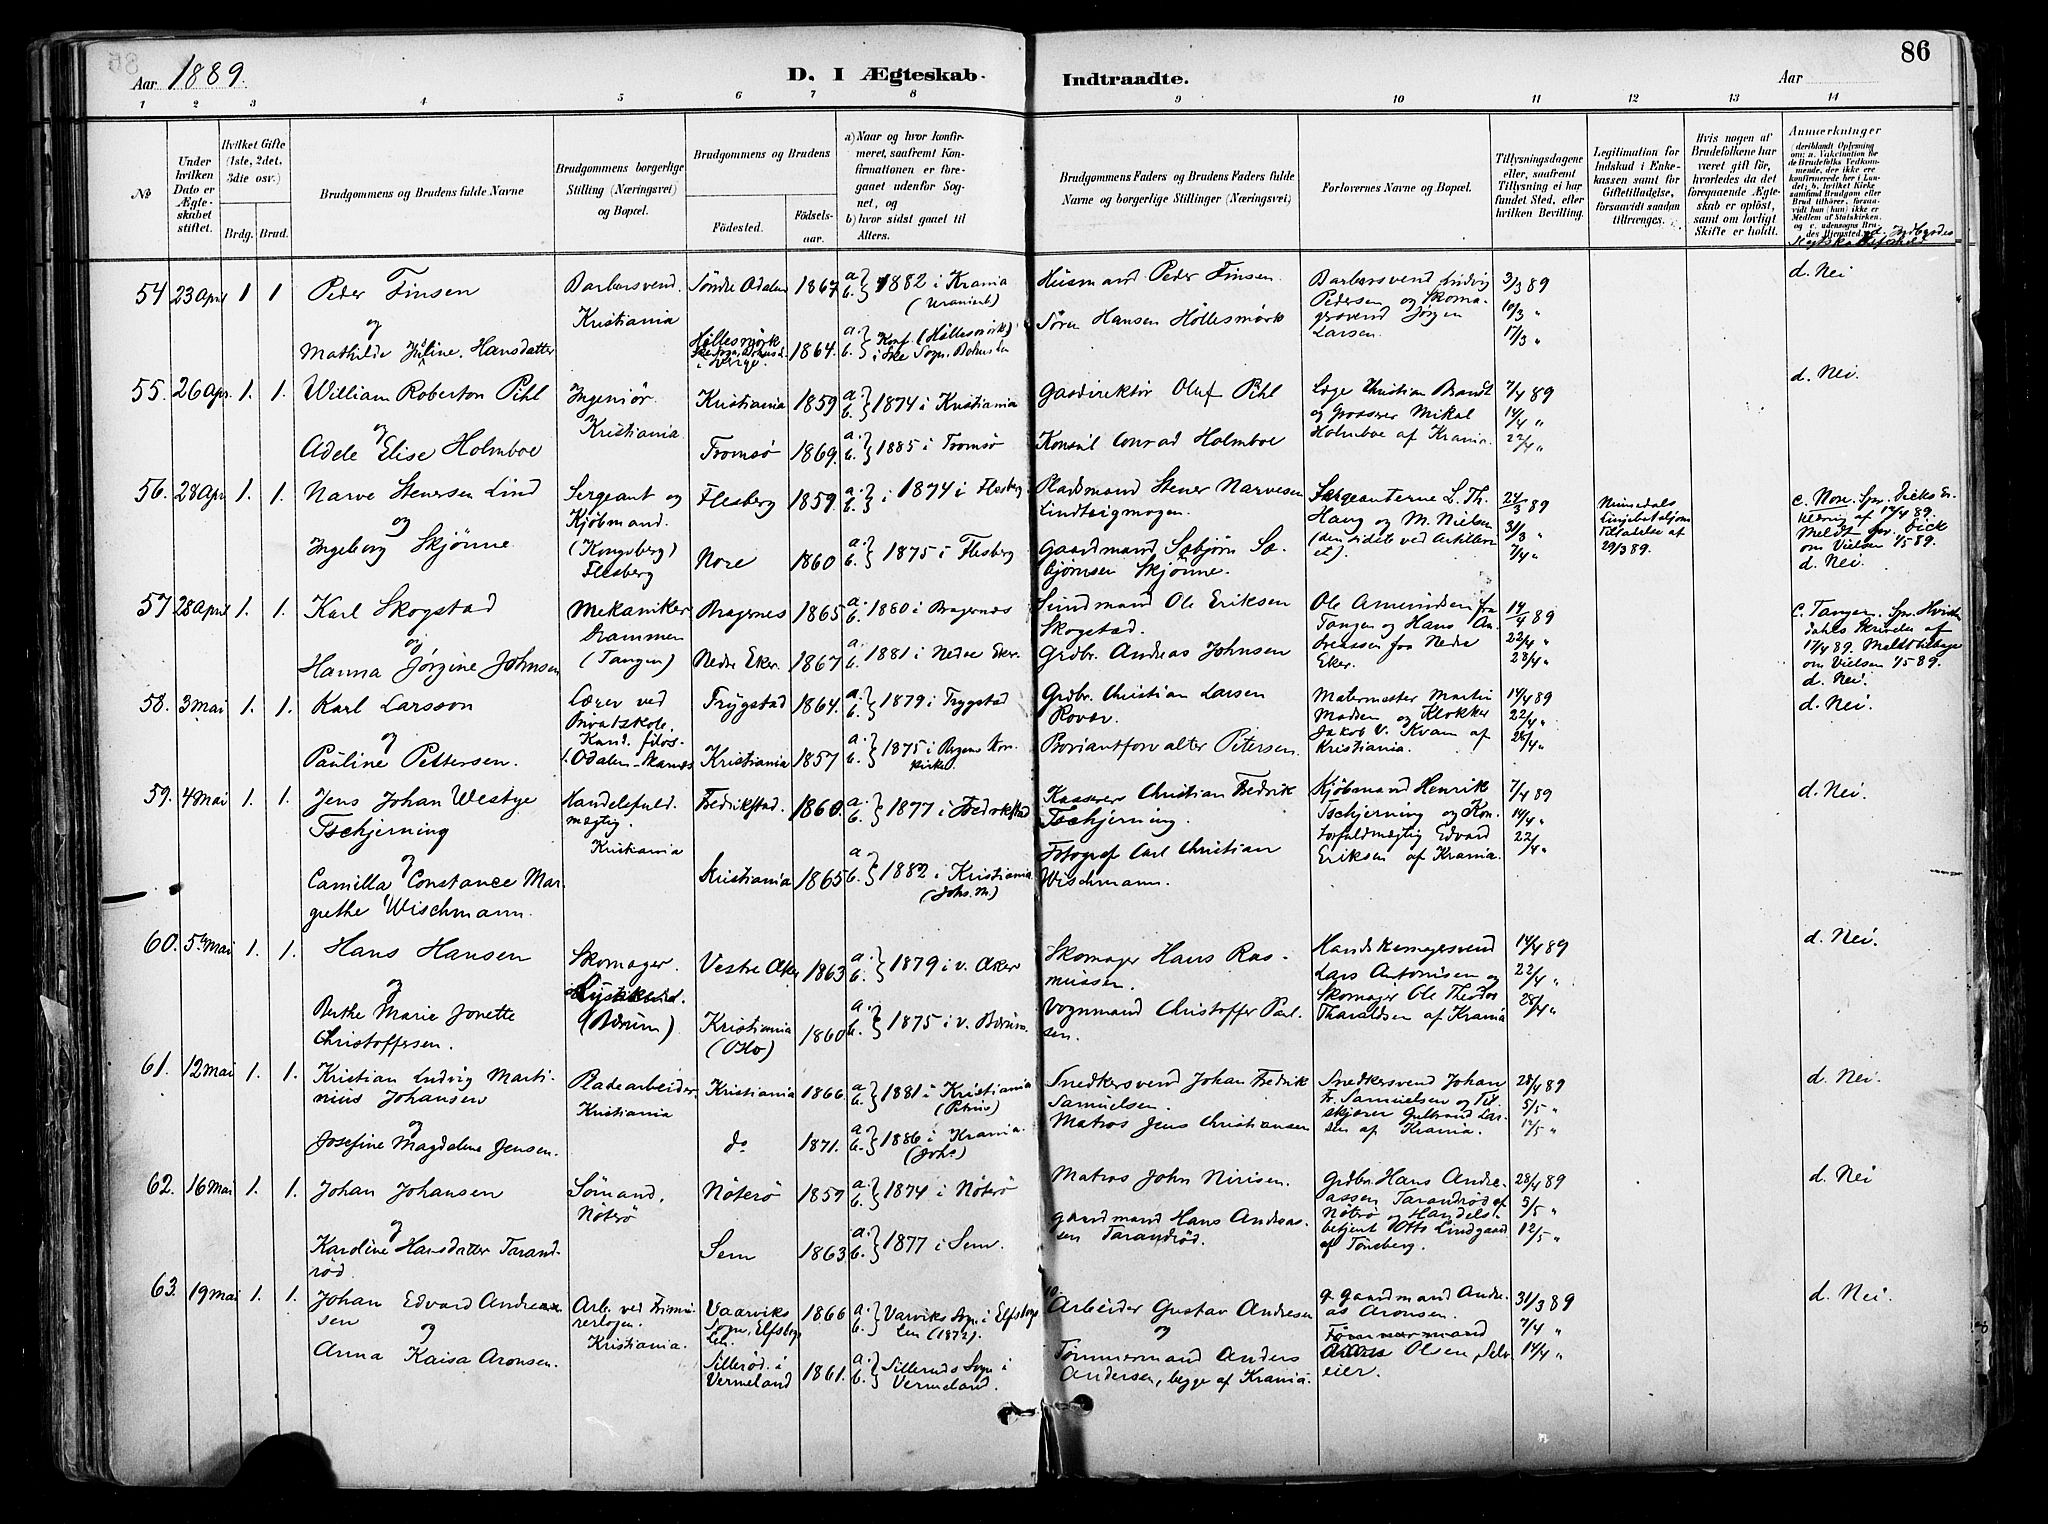 86
Aar 1889.
D. I Ægteskab
Indtraadte.
Aar
1 2 3 4 5 6 7 8 9 10 11 12 13 14
No
Under hvilken Dato er Ægteskabet stiftet.
Hvilket Gifte (1ste, 2det, 3die osv.)
Brdg. Brud.
Brudgommens og Brudens fulde Navne
Brudgommens borgerlige Stilling (Næringsvei) og Bopæl.
Brudgommens og Brudens
Fødested.
Fødselsaar.
a) Naar og hvor konfirmeret, saafremt Konfirmationen er foregaaet udenfor Sognet, og
b) hvor sidst gaaet til Alters.
Brudgommens Faders og Brudens Faders fulde Navne og borgerlige Stillinger (Næringsvei)
Forlovernes Navne og Bopæl.
Tillysningsdagene eller, saafremt Tillysning ei har fundet Sted, efter hvilken Bevilling.
Legitimation for Indskud i Enkekassen samt for Giftetilladelse, forsaavidt saadan tiltrænges.
Hvis nogen af Brudefolkene har været gift før, hvorledes da det foregaaende Ægteskab er opløst, samt om lovligt Skifte er holdt.
Anmerkninger (deriblandt Oplysning om: a. Vaccination for de Brudefolks Vedkommende, der ikke ere konfirmerede her i Landet; b. hvilket Kirkesamfund Brudgom eller Brud tilhører, forsaavidt han (hun) ikke er Medlem af Statskirken, og c. udensogns Brudes Hjemsted.
54 23 April 1 1 Peder Finsen Barbersvend. Søndre Odalen 1867 a. b. } 1882 i Krania Husmand Peder Finsen. Barbersvend Ludvig 3/3 89 d. Nei
og Kristiania (Uranienb.) Pedersen og Skoma- 10/3 "
Mathilde Juline Hansdatter Høllesmörk 1864. a. b. } Konf. (Høllesmörk) Sören Hansen Höllesmörk gersvend Jörgen Larsen. 17/3 "
55. 26 Apr. 1. 1. William Roberton Pihl Ingeniør. Kristiania 1859 a. b. } 1874 i Kristiania Gasdirektör Oluf Pihl Læge Christian Brandt 7/4 89 d. Nei.
og Kristiania. og Grosserer Mikal 14/4 "
Adele Elise Holmboe Tromsø 1869. a. b. } 1885 i Tromsø Konsul Conrad Holmboe Holmboe af Krania. 22/4 "
56. 28 Apr 1. 1. Narve Stenersen Lind Sergeant og Flesberg 1859. a. b. } 1874 i Flesberg Pladsmand Stener Narvesen Sergeanterne L. Th. 24/3 89
og Kjöbmand. Lindtsigmogen. Haug og M. Nielsen 31/3 "
Ingeborg Skjönne. (Kongsberg) Flesberg Nore 1860 a. b. } 1875 i Flesberg Gaardmand Sæbjörn Sæbjörnsen Skjönne. (den sidste ved Artilleriet). 7/4 "
Numedals Linjebataljons Tilladelse af 29/3 89.
c. Nore. Spr. Dicks Erklæring af 12/4 89. Meldt Spr. Dick om Vielsen 1/5 89. d. Nei.
57 28 April 1. 1. Karl Skogstad Mekaniker Bragernes 1865 a. b. } 1880 i Bragernæs Sundmand Ole Eriksen Skogstad. Ole Amundsen fra 14/4 89
og Drammen Tangen og Hans An- 22/4 "
Hanna Jörgine Johnsen (Tangen) Nedre Eker. 1867 a. b. } 1881 i Nedre Eker. Grdbr. Andreas Johnsen dreassen fra Nedre Eker. 28/4 "
c. Tangen. Spr. Skrivelse af 17/4 89. Meldt tilbage om Vielsen 1/5 89. d. Nei.
58. 3 Mai 1. 1. Karl Larsson Lærer ved Trygstad 1864. a. b. } 1879 i Trygstad Grdbr. Christian Larsen 14/4 89 d. Nei.
og Privatskole, Kand. filos. Madsen og Klokker 22/4 "
Pauline Pettersen. Odalen - Skarnæs Kristiania 1857 a. b. } 1875 i Petersen. Jakob V. Kvam af Kristiania. 28/4 "
59. 4 Mai 1. 1. Jens Johan Westye Tschjerning Handelsfuldmægtig. Fredrikstad. 1860. a. b. } 1877 i Fredrikstad Kasserer Christian Fredrik Tschjerning. Kjöbmand Henrik 7/4 89 d. Nei.
og Kristiania Tschjerning og Kon- 14/4 "
Camilla Constance Margrethe Wischmann. Kristiania 1865 a. b. } 1882 i Kristiania (Johs. M.) Fotograf Carl Christian Wischmann. torfuldmægtig Edvard Eriksen af Krania. 22/4 "
60. 5te Mai 1. 1. Hans Hansen Skomager. Vestre Aker 1863 a. b. } 1879 i v. Aker Skomager Hans Rasmussen. Handskemagersvend 14/4 89 d. Nei.
og (Bærum) Lars Antonisen og 22/4 "
Berthe Marie Jonette Christoffersen. Kristiania (Oslo) 1860 a. b. } 1875 i v. Bærum. Vognmand Christoffer Paulsen. Skomager Ole Theodor Tharaldsen af Krania 28/4 "
61. 12 Mai 1. 1. Kristian Ludvig Martinius Johansen Pladearbeider. Kristiania 1866 a. b. } 1881 i Kristiania (Petrus) Snedkersvend Johan Fredrik Samuelsen. Snedkersvend Johan 28/4 89 d. Nei.
og Kristiania Fr. Samuelsen og Til- 5/5 "
Josefine Magdalene Jensen. do 1871. a. b. } 1886 i Krania. (Johs) Matros Jens Christiansen skjærer Gulbrand Larsen af Krania. 12/5 "
62. 16 Mai 1. 1. Johan Johansen Sömand, Nöterö Nöterö 1859 a. b. } 1874 i Nöterö Matros John Nirisen. Grdbr. Hans Andre- 28/4 89 d. Nei
og assen Tarandröd af 5/5 "
Karoline Hansdatter Tarandröd. Sem 1863 a. b. } 1877 i Sem. Gaardmand Hans Andreassen Tarandröd. Nöterö og Handelsbetjent Otto Lindgaard af Tönsberg. 12/5 "
63. 19 Mai 1. 1. Johan Edvard Andreasen Arb. ved Frimurerlogen. Vaarviks Sogn, Elfsborgs Len. 1866 a. b. } Varviks Sogn i Elfsborgs Len (1872). Arbeider Gustav Andresen g. Gaardmand Andreas Aronsen. 31/3 89 d. Nei.
og Kristiania. og 7/4 "
Anna Kaisa Aronsen. Silleröd i Vermeland 1861. a. b. } Silleruds Sogn i Vermeland. Tömmermand Anders Andersen, begge af Krania. Olsen, Selveier. 14/4 "